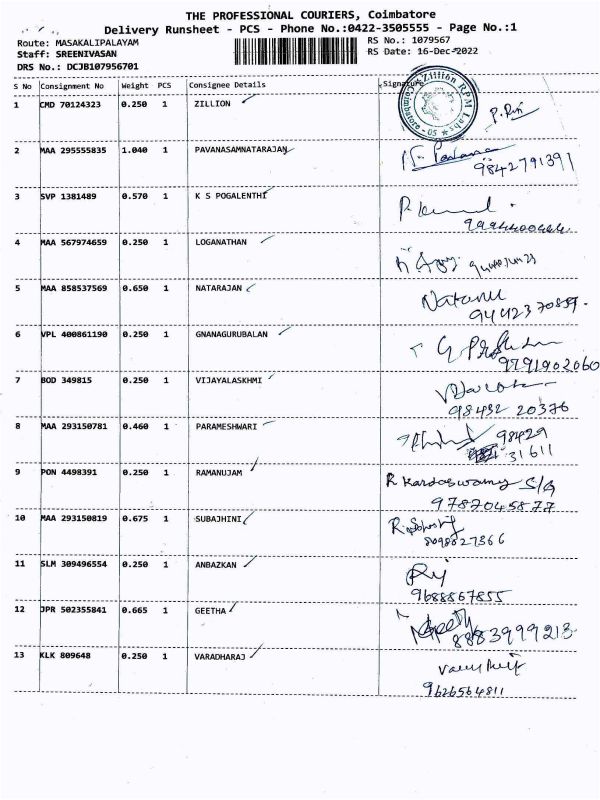 THE PROFESSIONAL COURIERS, Coimbatore
Delivery Runsheet - PCS - Phone No.:0422-3505555 - Page No.:1
Route: MASAKALIPALAYAM
RS No.: 1079567
Staff: SREENIVASAN
RS Date: 16-Dec-2022
DRS No.: DCJB107956701
S No Consignment No Weight PCS Consignee Details Signature
1 CMD 70124323 0.250 1 ZILLION
Zillion RPM Labs
Coimbatore - 05
2 MAA 295555835 1.040 1 PAVANASAMNATARAJAN
9842791391
3 SVP 1381489 0.570 1 K S POGALENTHI
4 MAA 567974659 0.250 1 LOGANATHAN
5 MAA 858537569 0.650 1 NATARAJAN
6 VPL 400861190 0.250 1 GNANAGURUBALAN
9791902060
7 BOD 349815 0.250 1 VIJAYALASKHMI
98432 20376
8 MAA 293150781 0.460 1 PARAMESHWARI
98429
31611
9 PON 4498391 0.250 1 RAMANUJAM
R Kandaswamy S/G
9787045877
10 MAA 293150819 0.675 1 SUBAJHINI
8098827366
11 SLM 309496554 0.250 1 ANBAZKAN
9688867855
12 JPR 502355841 0.665 1 GEETHA
8883999213
13 KLK 809648 0.250 1 VARADHARAJ
9626564811